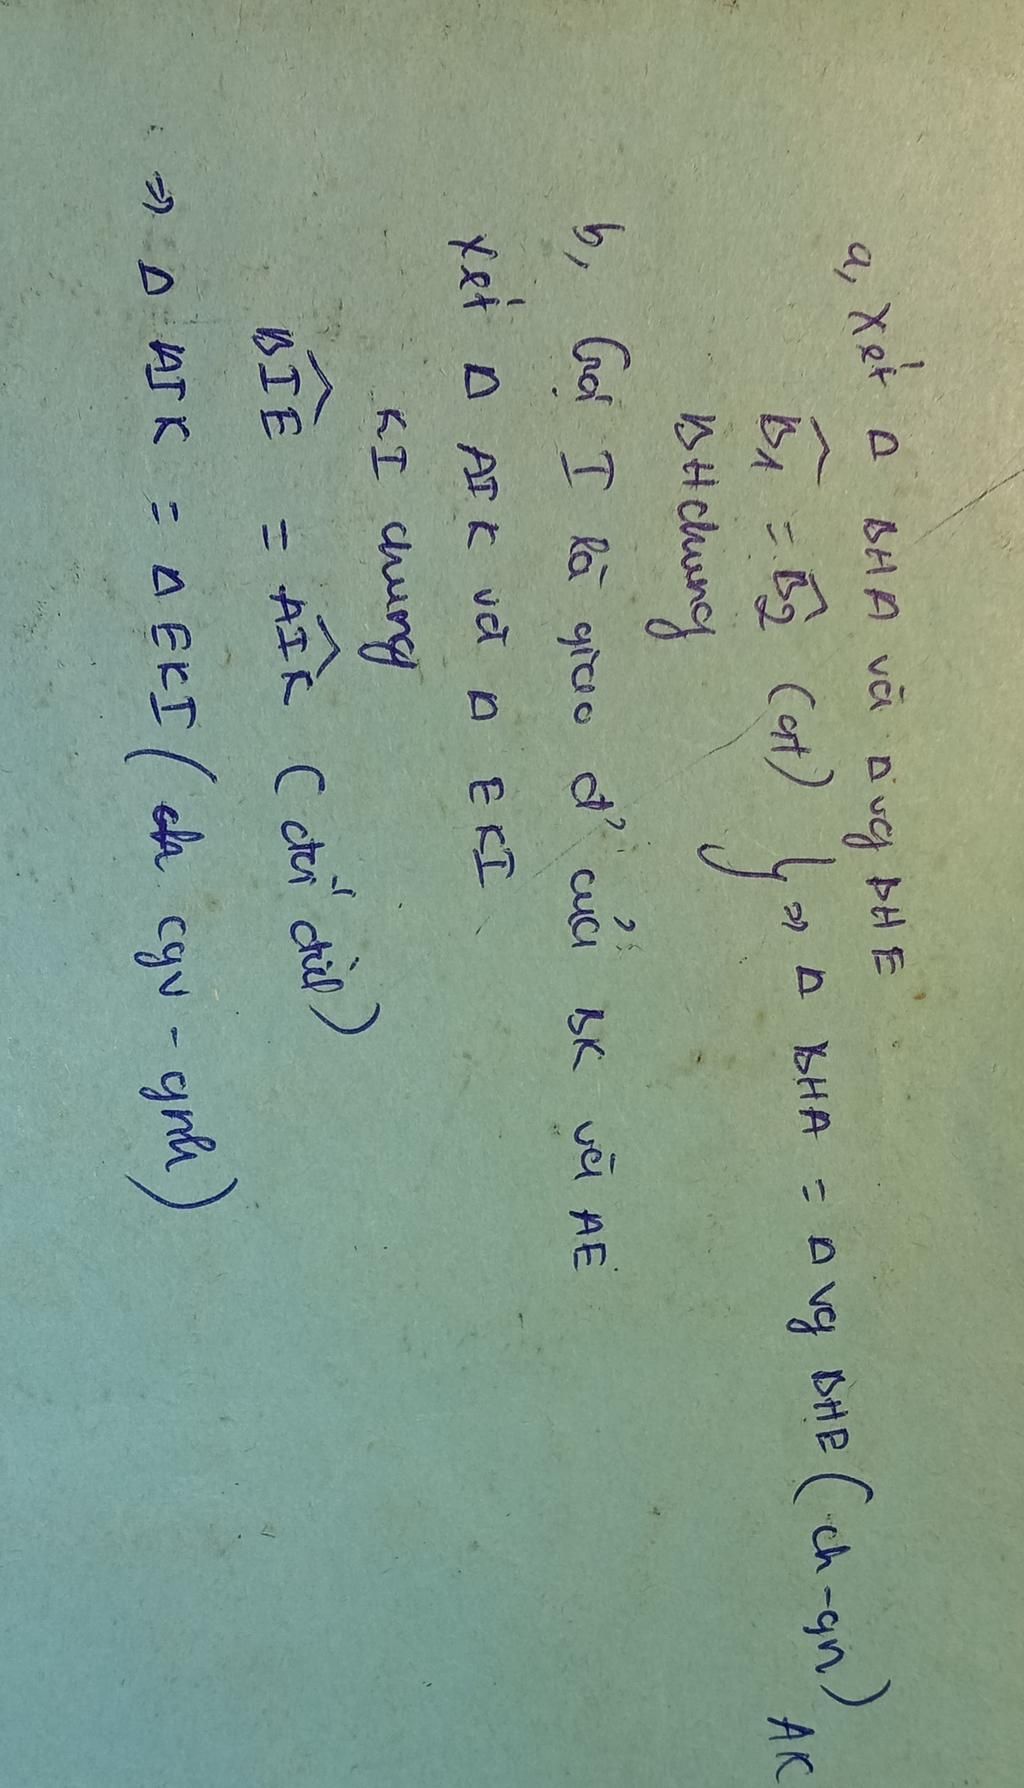 a, Xét Δ BHA và Δ vg BHE
B̂1 = B̂2 (gt)
} => Δ BHA = Δ vg BHE (ch-gn)
AK
BH chung
b, Gọi I là giao đ' của BK và AE
Xét Δ AIK và Δ EKI
KI chung
BIE = AIK (đối đỉnh)
=> Δ AIK = Δ EKI ( cgv - gnh)